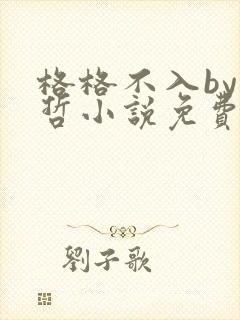 格格不入by
哲小說免費
劉子歌